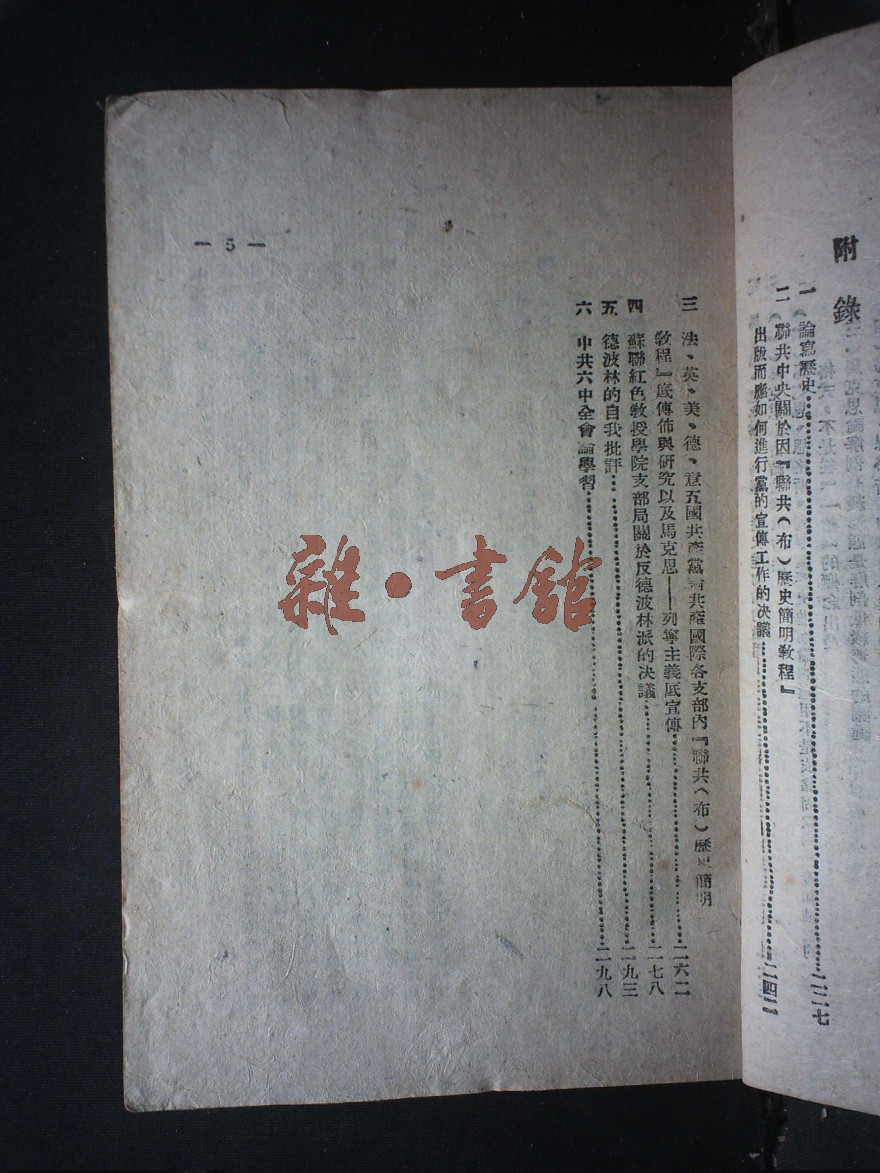 附錄
一 論寫歷史……二二七
二 聯共中央關於因『聯共(布)歷史簡明教程』
出版而應如何進行黨的宣傳工作的決議……二四二
三 法、英、美、德、意五國共產黨論共產國際各支部內『聯共(布)歷史簡明
教程』底傳佈與研究以及馬克思——列寧主義底宣傳……二六二
四 蘇聯紅色教授學院支部局關於反德波林派的決議……二七八
五 德波林的自我批評……二九三
六 中共六中全會論學習……二九八
— 5 —
雜·書館